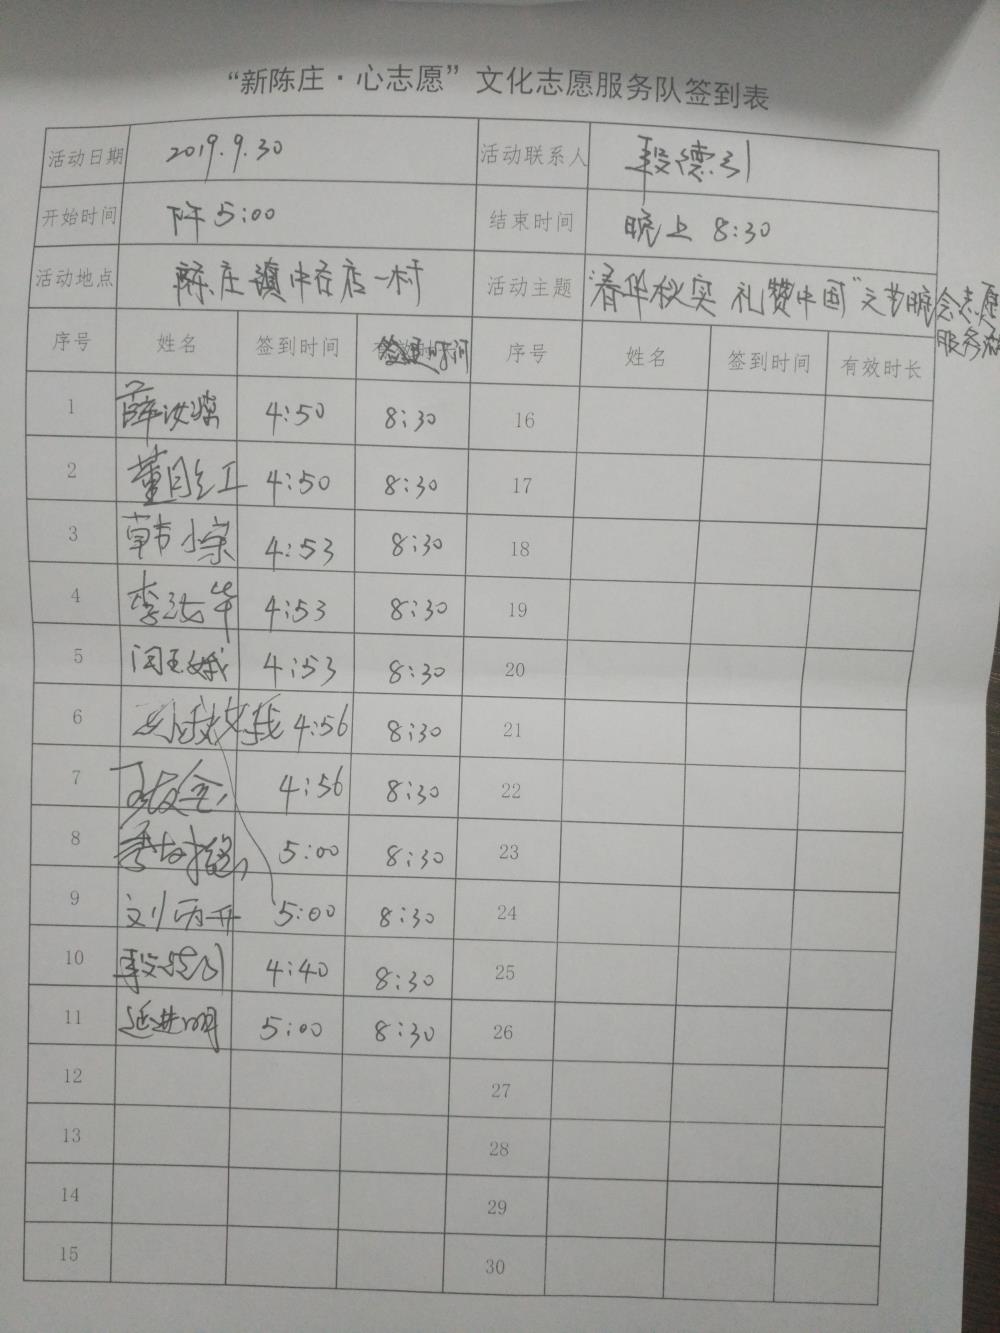 “新陈庄·心志愿”文化志愿服务队签到表
活动日期 2019.9.30 活动联系人 段德引
开始时间 下午5:00 结束时间 晚上 8:30
活动地点 陈庄镇中谷店一村 活动主题 “春华秋实 礼赞中国”文艺晚会志愿
服务活
序号 姓名 签到时间 签退时间 序号 姓名 签到时间 有效时长
1 薛汝 4:50 8:30 16
2 董月红 4:50 8:30 17
3 韩小宗 4:53 8:30 18
4 李汝华 4:53 8:30 19
5 闫玉娥 4:53 8:30 20
6 4:56 8:30 21
7 4:56 8:30 22
8 5:00 8:30 23
9 刘丙开 5:00 8:30 24
10 段德引 4:40 8:30 25
11 延进明 5:00 8:30 26
12 27
13 28
14 29
15 30